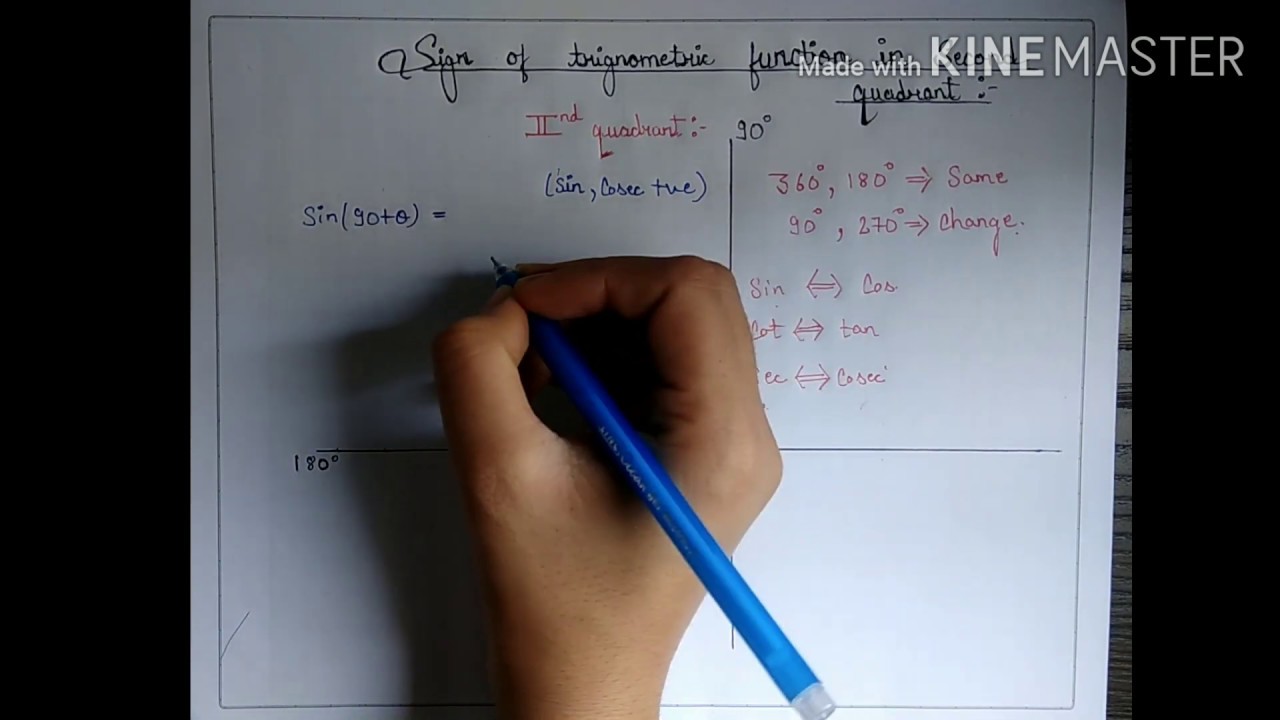 Sign of trignometric function in Second
quadrant :-
Made with KINEMASTER
IInd quadrant :-
90°
(Sin, Cosec +ve)
360°, 180° ⇒ Same
Sin(90+θ) =
90°, 270° ⇒ Change.
Sin ⇔ Cos
Cot ⇔ tan
Sec ⇔ Cosec
180°